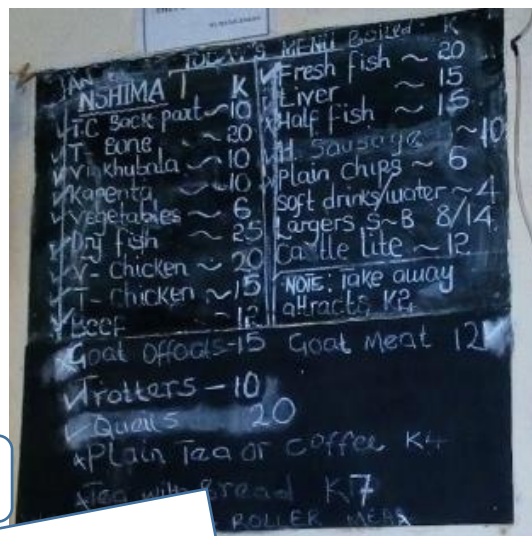 TODAY'S MENU Boiled K
NSHIMA K
T.C Back part ~10
T Bone ~ 20
Vinkhubala ~ 10
Kapenta ~10
Vegetables ~ 6
Dry fish ~ 25
V- Chicken ~ 20
T- Chicken ~ 15
Beef ~ 12
Fresh fish ~ 20
Liver ~ 15
Half fish ~ 15
H. Sausage ~10
Plain Chips ~ 6
Soft drinks/water ~ 4
Largers S~B 8/14
Castle lite ~ 12
NOTE: Take away
attracts K2
Goat Offoals-15 Goat Meat 12
Trotters - 10
Quails 20
Plain Tea or Coffee K4
Tea with Bread K7
ROLLER MEAL